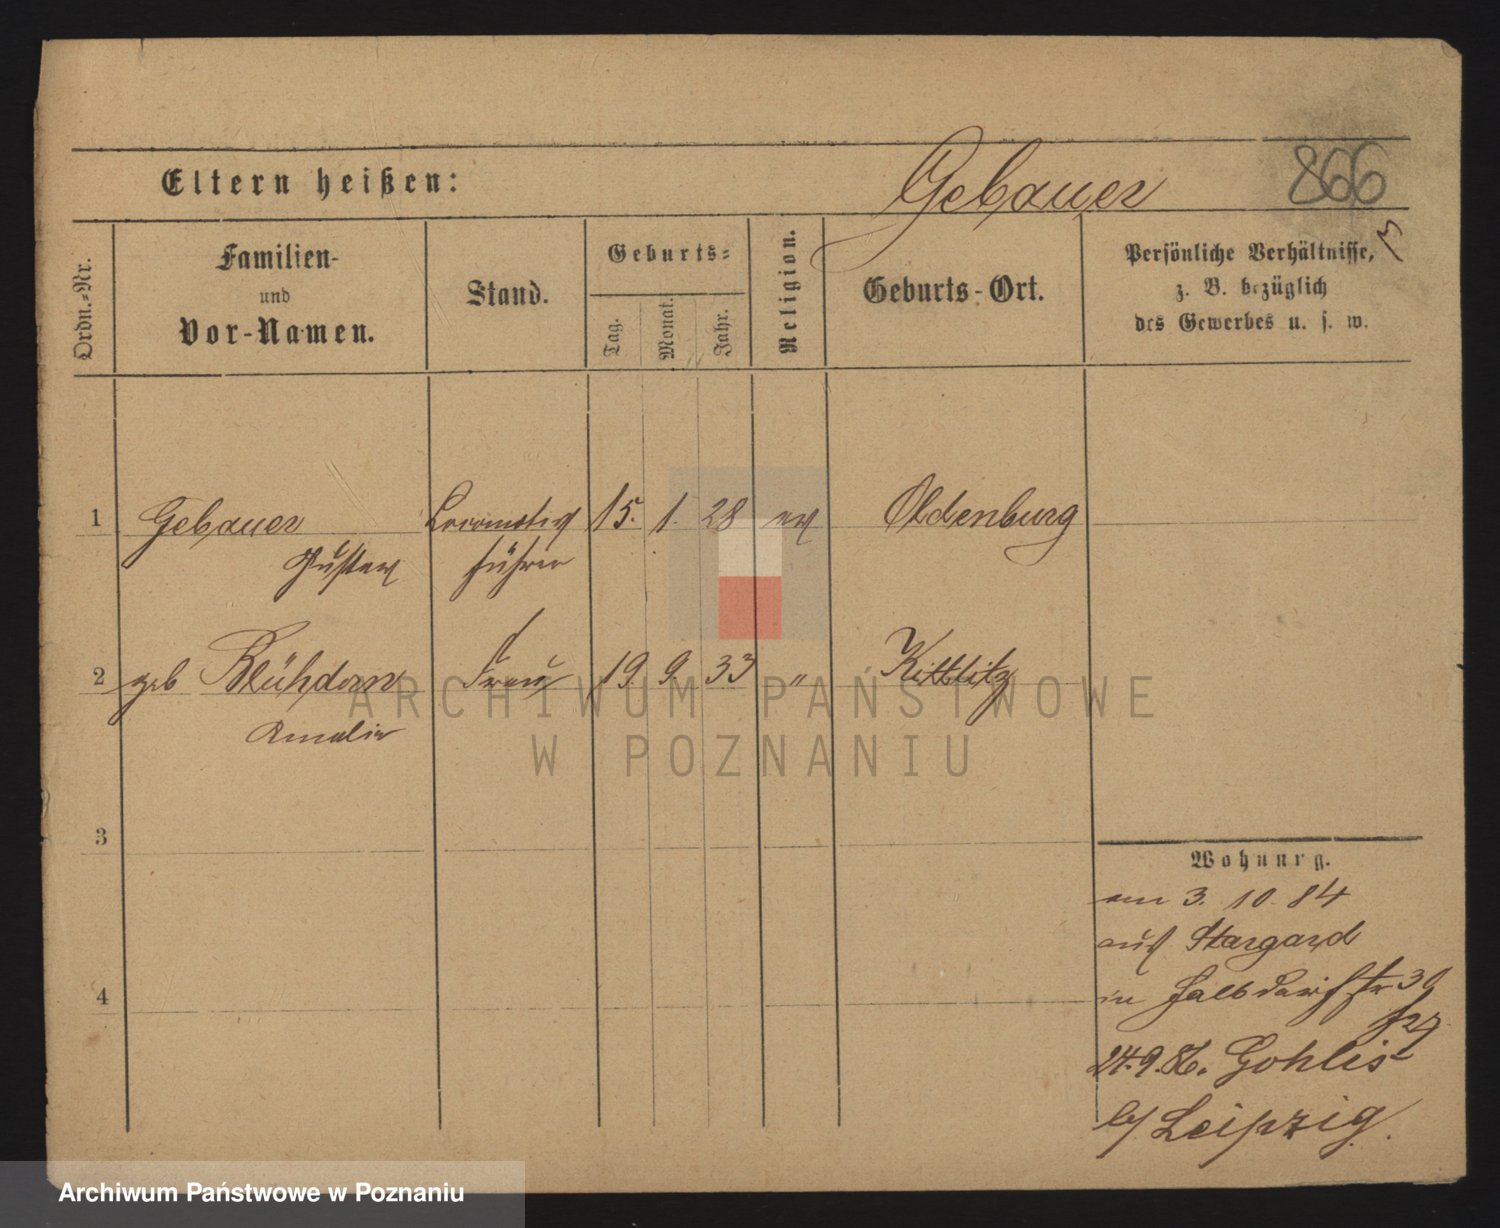 Eltern heißen:
Gebauer
866
Ordn.-Nr.
Familien-
und
Vor-Namen.
Stand.
Geburts-
Tag.
Monat.
Jahr.
Religion.
Geburts-Ort.
Persönliche Verhältnisse,
z. B. bezüglich
des Gewerbes u. s. w.
1 Gebauer Locomotiv 15. 1. 28 ev Oldenburg
Gustav führer
2 geb Blühdorn Frau 19 9. 33 " Kittlitz
Amalie
ARCHIWUM PAŃSTWOWE
W POZNANIU
3
4
Wohnung.
am 3. 10. 84
aus Stargard
in
24.9.86. Gohlis
b/ Leipzig.
Archiwum Państwowe w Poznaniu